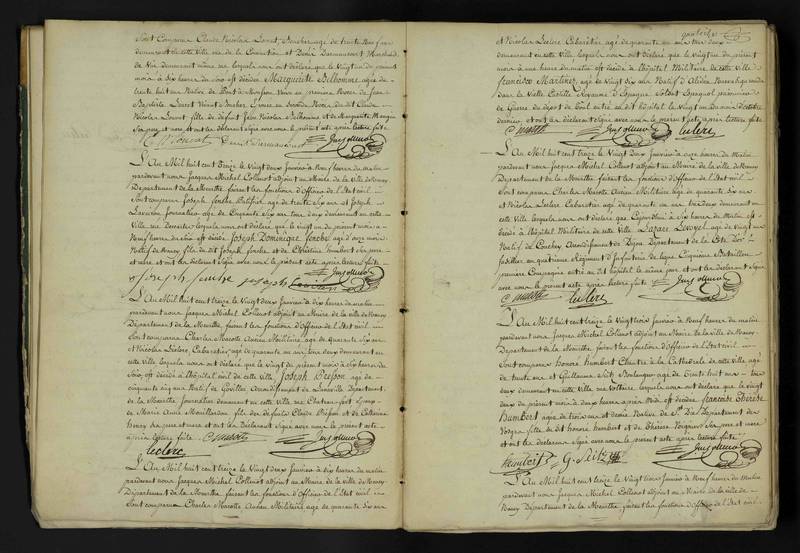 Sont comparus Claude Nicolas Louvet, Boucher agé de trente neuf ans
demeurant de cette Ville rue de la Constitution et Denis Dermancourt Marchand
de Vin demeurant même rue lesquels nous ont déclaré que le Vingt un du présent
mois à six heures du soir est décédée Marguerite Belhomme agée de
trente huit ans Native de Pont à Mousson Veuve en premières Noces de Jean
Baptiste Louvet Vivant Boucher, Epouse en secondes Noces du dit Claude
Nicolas Louvet fille de défunt Jean Nicolas Belhomme et de Marguerite Mangin
ses pere et mere, et ont les déclarans signé avec nous le présent acte après lecture faite
L'An Mil huit cent treize le Vingt deux Janvier à dix heures du matin
pardevant nous Jacques Michel Collenot adjoint au Maire de la Ville de Nancy
Département de la Meurthe, faisant les fonctions d'Officier de l'Etat civil
Sont comparus Joseph Ferche Postillon agé de trente six ans et Joseph
Lavivien Journalier agé de Cinquante six ans tous deux demeurant en cette
Ville lesquels nous ont déclaré que le vingt un du présent mois à
Neuf heures du soir est décédé Joseph Dominique Ferche agé d'onze mois
Natif de Nancy fils du dit Joseph Ferche et de Christine humbert ses pere
et mere et ont les déclarans Signé avec nous le présent acte après lecture faite
Joseph ferche
L'An Mil huit cent treize le Vingt deux Janvier à dix heures du matin
pardevant nous Jacques Michel Collenot adjoint au Maire de la ville de Nancy
Département de la Meurthe, faisant les fonctions d'Officier de l'Etat civil
Sont comparus Charles Marotte Ancien Militaire agé de quarante Six ans
et Nicolas Leclerc Cabaretier agé de quarante un ans tous deux demeurant en
cette Ville lesquels nous ont déclaré que le Vingt du présent mois à six heures du
soir est décédé à l'hôpital civil de cette Ville, Joseph Presson agé de
cinquante cinq ans Natif de Arrondissement de Lunéville Département
de la Meurthe Journalier demeurant en cette Ville rue Chateau-fort Epoux
de Marie Anne fils des défunts Claude Presson et de Catherine
ses pere et mere et ont les déclarans signé avec nous le présent acte
après lecture faite
leclerc
L'An Mil huit cent treize le Vingt deux Janvier à dix heures du matin
pardevant nous Jacques Michel Collenot adjoint au Maire de la Ville de Nancy
Département de la Meurthe faisant les fonctions d'Officier de l'Etat civil
Sont comparus Charles Marotte Ancien Militaire agé de quarante six ans
et Nicolas Leclerc Cabaretier agé de quarante un ans tous deux
demeurant en cette Ville lesquels nous ont déclaré que le Vingt un du présent
mois à une heure du matin est décédé à l'hôpital Militaire de cette Ville
francisco Martinez, agé de Vingt six ans Natif d'
dans la Vieille Castille Royaume d'Espagne Soldat Espagnol prisonnier
de Guerre du dépot de Toul entré au dit hôpital le Vingt un du mois d'octobre
dernier, et ont les déclarans signé avec nous le présent acte après lecture faite
leclerc
L'An Mil huit cent treize le Vingt deux Janvier à onze heures du Matin
pardevant nous Jacques Michel Collenot adjoint au Maire de la Ville de Nancy
Département de la Meurthe faisant les fonctions d'Officier de l'Etat civil
Sont comparus Charles Marotte Ancien Militaire agé de quarante six ans
et Nicolas Leclerc Cabaretier agé de quarante un ans tous deux demeurant en
cette Ville lesquels nous ont déclaré que Cejourdhui à Six heures du Matin est
décédé à l'hôpital Militaire de cette Ville Lazare Levoyet agé de Vingt ans
Natif de Couchey Arrondissement de Dijon Département de la Côte d'or
fusillier au quatrieme Régiment d'Infanterie de ligne Cinquieme Bataillon
premiere Compagnie entré au dit hôpital le même jour et ont les déclarans Signé
avec nous le présent acte après lecture faite
leclerc
L'An Mil huit cent treize le Vingt trois Janvier à Neuf heures du matin
pardevant nous Jacques Michel Collenot adjoint au Maire de la Ville de Nancy
Département de la Meurthe faisant les fonctions d'Officier de l'Etat civil
Sont comparus honoré humbert Chantre à la Cathédrale de cette Ville agé
de trente ans et Guillaume Seitz Boulanger agé de trente huit ans tous
deux demeurant en cette Ville lesquels nous ont déclaré que le vingt
deux du présent mois à deux heures après midi est décédée françoise Thérèse
Humbert agée de trois ans et demi Native de St. Dié Département des
Vosges fille du dit honoré humbert et de Thérèse ses pere et mere
et ont les déclarans Signé avec nous le présent acte après lecture faite
humbert G. Seitz
L'An Mil huit cent treize le Vingt trois Janvier à Neuf heures du Matin
pardevant nous Jacques Michel Collenot adjoint au Maire de la Ville de
Nancy Département de la Meurthe, faisant les fonctions d'Officier de l'Etat civil